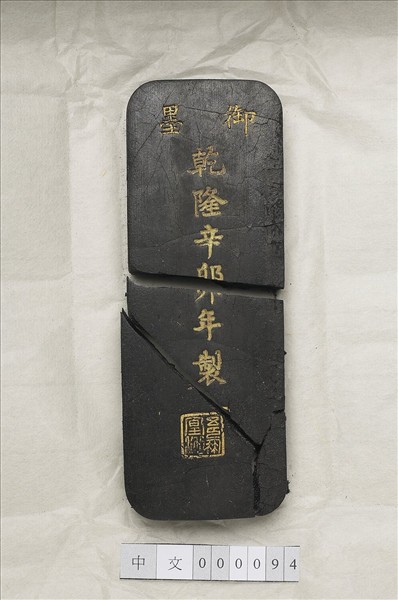 御墨
乾隆辛卯年製
中文000094